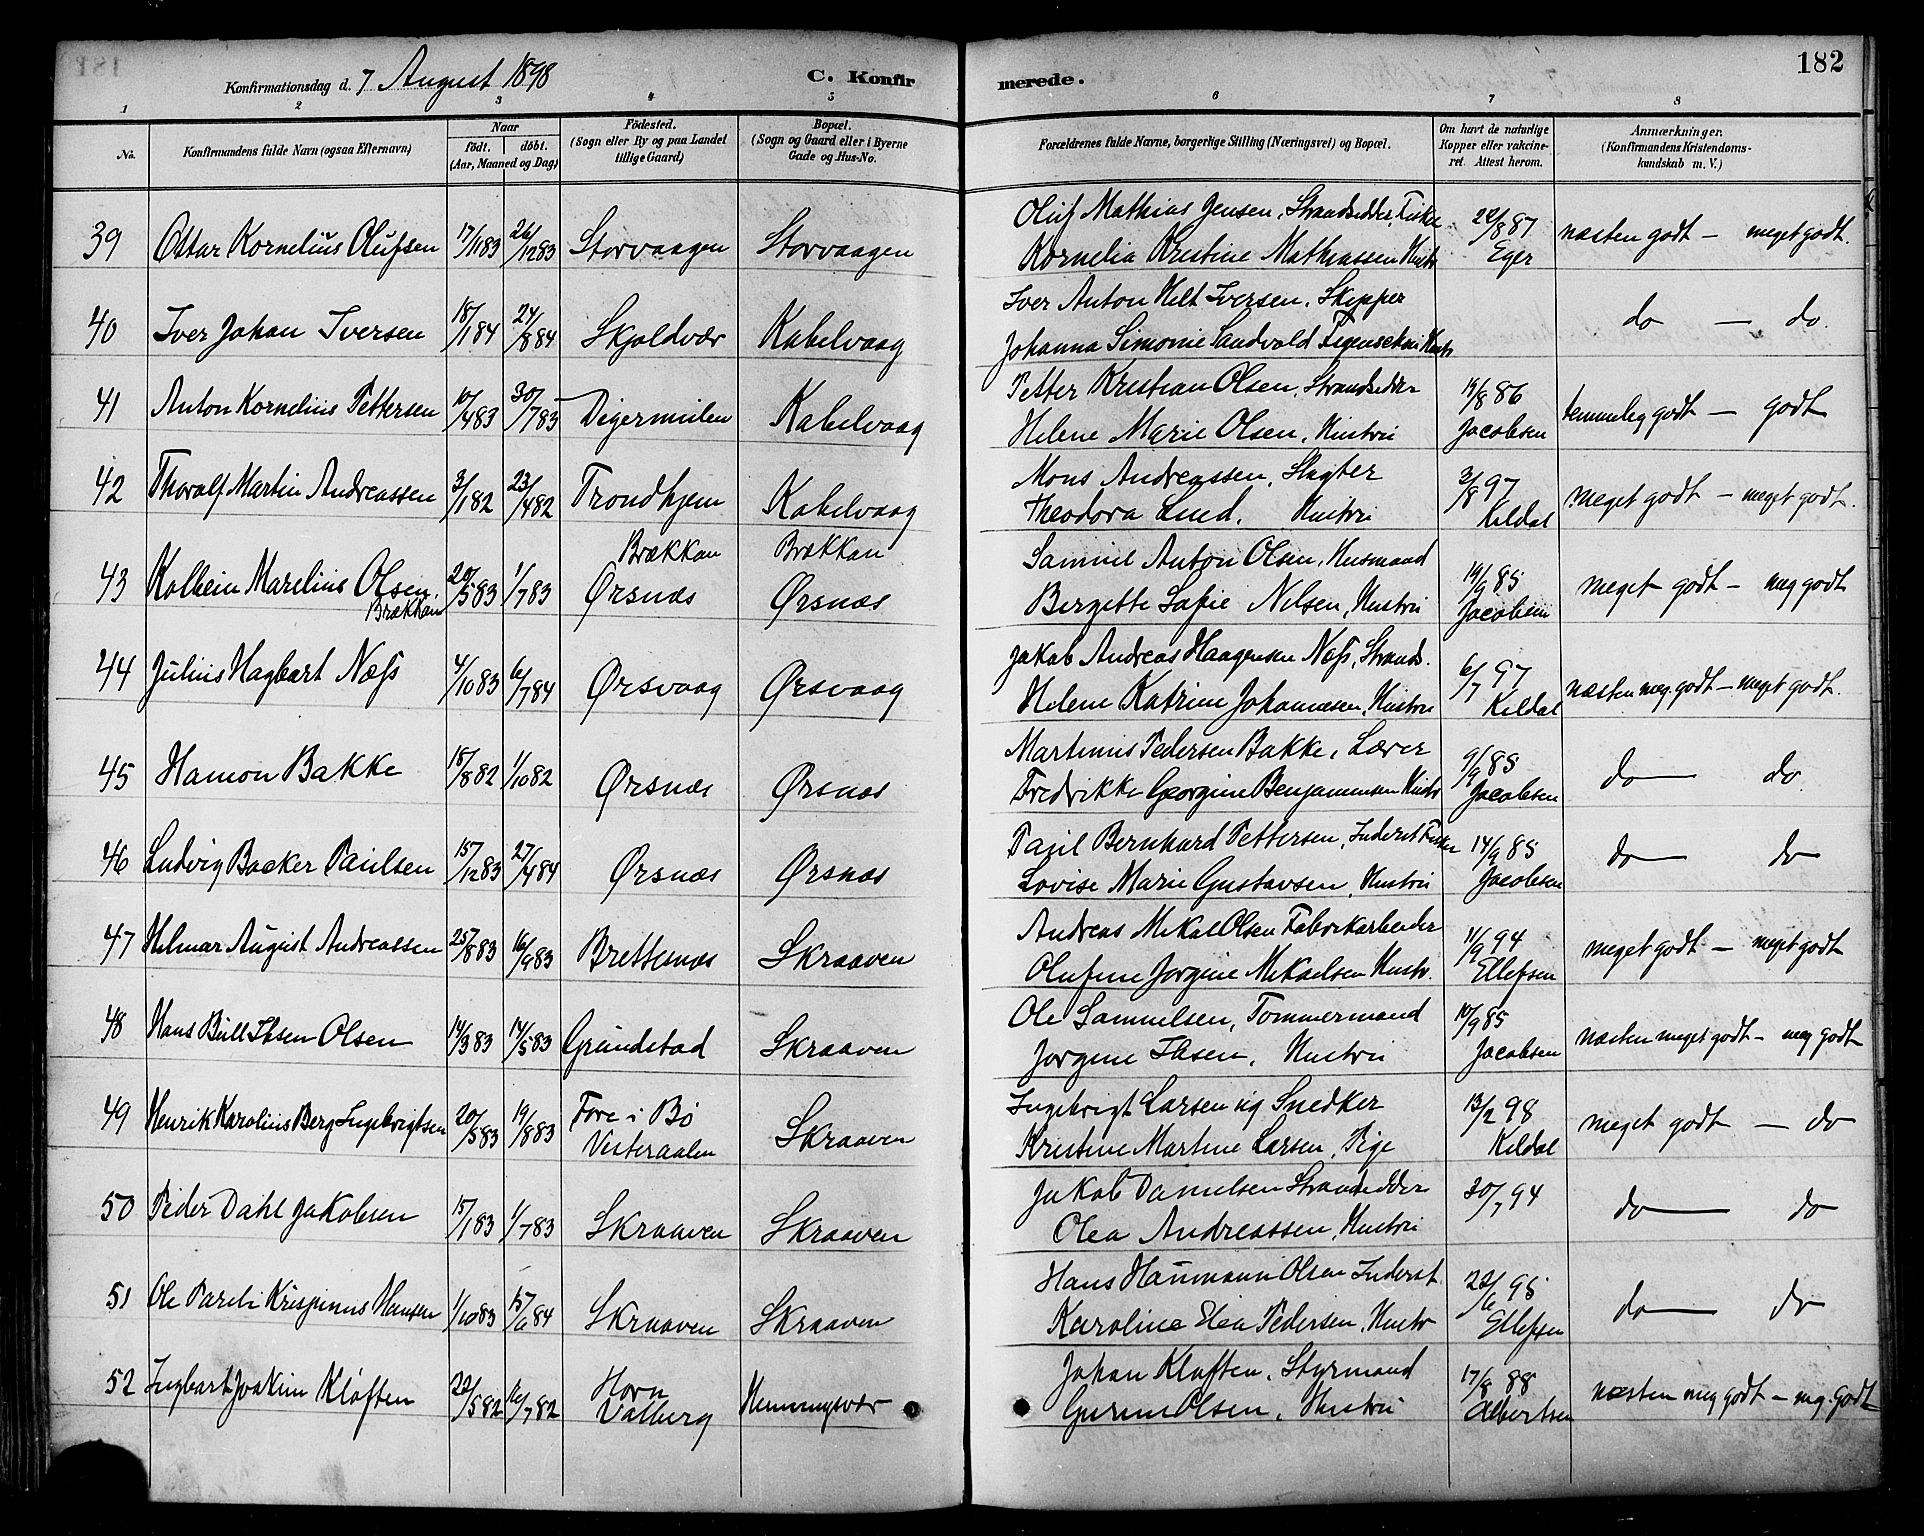 182
Konfirmationsdag d. 7 August 1898
C. Konfirmerede.
1 2 3 4 5 6 7 8
No.
Konfirmandens fulde Navn (ogsaa Efternavn)
Naar
födt. döbt.
(Aar, Maaned og Dag)
Födested.
(Sogn eller By og paa Landet
tillige Gaard)
Bopæl.
(Sogn og Gaard eller i Byerne
Gade og Hus-No.
Forældrenes fulde Navne, borgerlige Stilling (Næringsvei) og Bopæl.
Om havt de naturlige
Kopper eller vakcine-
ret. Attest herom.
Anmærkninger.
(Konfirmandens Kristendoms-
kundskab m. V.)
39 Ottar Kornelius Olufsen 17/11 83 26/12 83 Storvaagen Storvaagen
Oluf Mathias Jensen, Strandsidder, Fisker 22/8 87 næsten godt – meget godt.
Kornelia Kristine Mathiassen Hustr Eger
40 Iver Johan Iversen 18/1 84 24/8 84 Skjoldvær Kabelvaag
Iver Anton Hilt Iversen, Skipper do – do.
Johanna Simonie Sandvold Hustr
41 Anton Kornelius Pettersen 10/4 83 30/7 83 Digermulen Kabelvaag
Petter Kristian Olsen, Strandsidder 19/8 86 temmelig godt – godt
Helene Marie Olsen, Hustru Jacobsen
42 Thoralf Martin Andreassen 3/1 82 23/4 82 Trondhjem Kabelvaag
Mons Andreassen, Slagter 3/8 97 meget godt – meget godt.
Theodora Lind, Hustru Kildal
Brækkan Brækkan
43 Kolbein Marelius Olsen, 20/5 83 1/7 83 Ørsnæs Ørsnæs
Brækkan
Samuel Anton Olsen, Husmand 19/9 85 meget godt – meg godt
Bergitte Sofie Nilsen, Hustru Jacobsen
44 Julius Hagbart Næss 4/10 83 6/7 84 Ørsvaag Ørsvaag
Jakob Andreas Haagensen Næss, Strands. 6/7 97 næsten meg. godt – meget godt.
Helene Katrine Johannesen, Hustru Kildal
45 Hamon Bakke 18/8 82 1/10 82 Ørsnæs Ørsnæs
Martinus Pedersen Bakke, Lærer 9/9 85 do – do.
Fredrikke Georgine Benjaminsen Hustr Jacobsen
46 Ludvig Backer Paulsen 15/12 83 27/4 84 Ørsnæs Ørsnæs
Paul Bernhard Pettersen, Inderst Fisker 14/9 85 do – do
Lovise Marie Gustavsen, Hustru Jacobsen
47 Hilmar August Andreassen 25/8 83 16/9 83 Brettesnæs Skraaven
Andreas Mikal Olsen Fabrikarbeider 11/9 94 meget godt – meget godt
Olufine Jorgine Mikaelsen Hustr. Ellefsen
48 Hans Bull Ibsen Olsen 14/3 83 14/5 83 Grundstad Skraaven
Ole Samuelsen, Tømmermand 10/9 85 næsten meget godt – meg godt
Jorgine Ibsen, Hustru Jacobsen
49 Henrik Karolius Berg Ingebrigtsen 20/5 83 19/8 83 Fore i Bø Skraaven
Vesteraalen
Ingebrigt Larsen ug Snedker 13/2 98 meget godt – do
Kristine Martine Larsen, Pige Kildal
50 Peder Dahl Jakobsen 15/1 83 1/7 83 Skraaven Skraaven
Jakob Danielsen Strandsidder 30/7 94 do – do
Olea Andreassen, Hustru
51 Ole Pareli Krispinus Hansen 1/10 83 15/6 84 Skraaven Skraaven
Hans Haümann Olsen Inderst 22/6 95 do – do
Karoline Elea Pedersen, Hustr Ellefsen
52 Ingbart Joakim Kløften 22/5 82 16/7 82 Horn Henningsvær
Valberg
Johan Kløften, Styrmand 17/8 88 næsten meg godt – meg. godt
Gurine Olsen, Hustru Albertsen